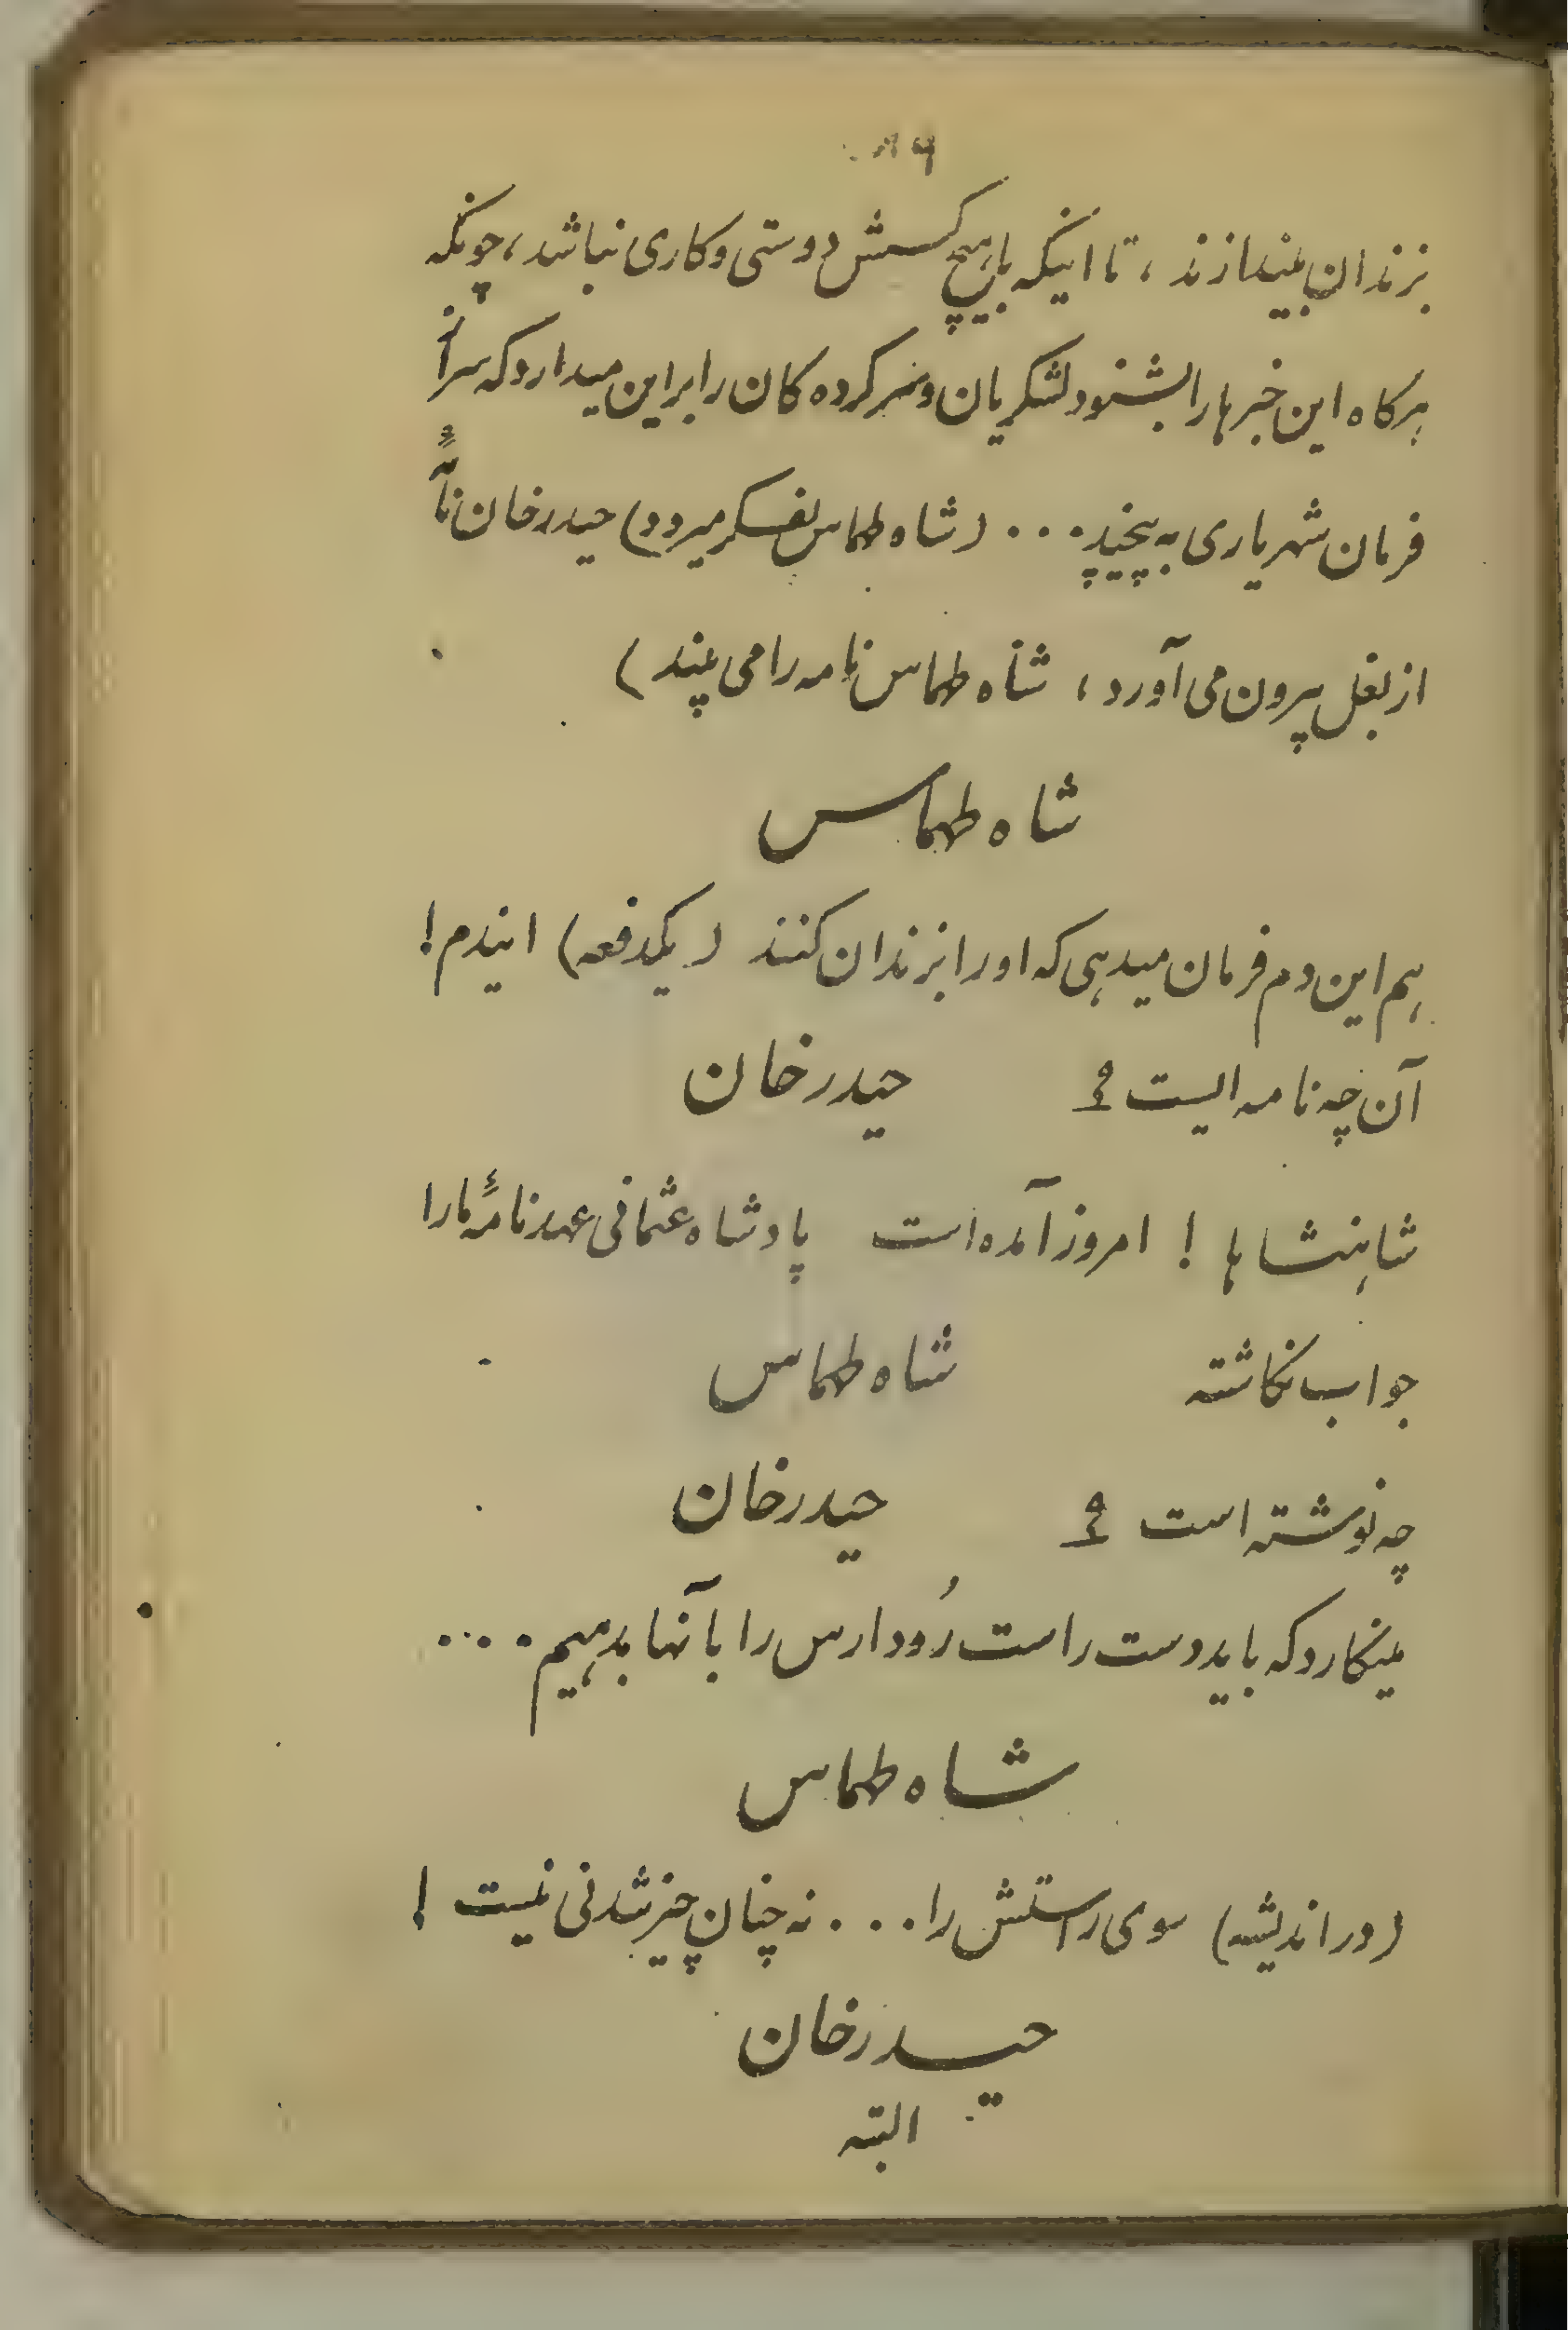 ۸۹
بزندان بیندازند، تا اینکه با هیچ کسش دوستی و کاری نباشد، چونکه
هرکاه این خبرها را بشنود لشکریان و سرکرده کان را براین میدارد که سر از
فرمان شهریاری به پیچند ... (شاه طهماس بفکر میرود) حیدرخان نامهٔ
از بغل بیرون می آورد، شاه طهماس نامه را می بیند)
شاه طهماس
هم این دم فرمان میدهی که او را بزندان کنند (یکدفعه) ایندم!
آن چه نامه ایست؟ حیدرخان
شاهنشاها! امروز آمده است پادشاه عثمانی عهدنامهٔ ما را
جواب نکاشته شاه طهماس
چه نوشته است؟ حیدرخان
مینکارد که باید دست راست رُود ارس را بآنها بدهیم ....
شاه طهماس
(در اندیشه) سوی راستش را ... نه چنان چیز شدنی نیست!
حیدرخان
البته